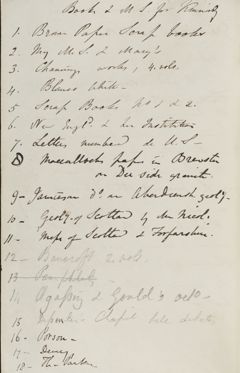 Books & M.S. for
1. Brown Paper Scrap books
2. My M.S. & Mary's
3. Channings works, 4 vols.
4. Blanco White -
5. Scrap Books No 1 & 2.
6. New Engld. & her Institutions
7. Letters numbered de U.S -
8 Macculloch paper in Brewster
on Dee side granite.
9 - Jamieson do on Aberdeensh. geoly.
10 - Geoly. of Scotland by Nicol.
11 - Maps of Scotland & Forfarshire.
12 - Bancroft 2 vols.
13 - Pamphlets -
14 Agassiz & Gould's octo -
15 Chapel bill debate
16 - Porson -
17 - Dewey
18 - Th. Parker